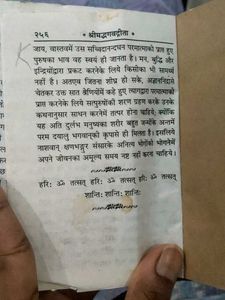 २५६ श्रीमद्भगवद्गीता
जाय, वास्तवमें उस सच्चिदानन्दघन परमात्माको प्राप्त हुए
पुरुषका भाव वह स्वयं ही जानता है। मन, बुद्धि और
इन्द्रियोंद्वारा प्रकट करनेके लिये किसीका भी सामर्थ्य
नहीं है। अतएव जितना शीघ्र हो सके, अज्ञाननिद्रासे
चेतकर उक्त सात श्रेणियोंमें कहे हुए त्यागद्वारा परमात्माको
प्राप्त करनेके लिये सत्पुरुषोंकी शरण ग्रहण करके उनके
कथनानुसार साधन करनेमें तत्पर होना चाहिये; क्योंकि
यह अति दुर्लभ मनुष्यका शरीर बहुत जन्मोंके अन्तमें
परम दयालु भगवान्‌की कृपासे ही मिलता है। इसलिये
नाशवान् क्षणभङ्गुर संसारके अनित्य भोगोंको भोगनेमें
अपने जीवनका अमूल्य समय नष्ट नहीं करना चाहिये।
हरि: ॐ तत्सत् हरि: ॐ तत्सत् हरि: ॐ तत्सत्
शान्ति: शान्ति: शान्ति: